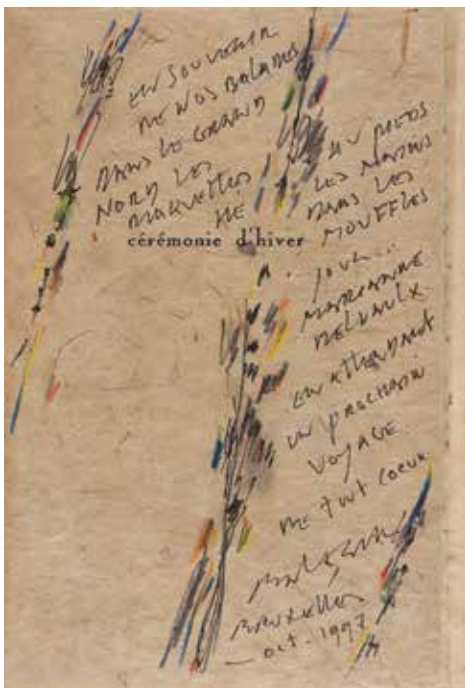 EN SOUVENIR
DE NOS BALADES
DANS LE GRAND
NORD LES
RAQUETTES
AU PIEDS
LES MAINS
DANS LES
MOUFFLES
cérémonie d'hiver
POUR...
MARIANNE
DELVAULX
EN ATTENDANT
UN PROCHAIN
VOYAGE
DE TOUT COEUR
BRUXELLES
oct. 1997